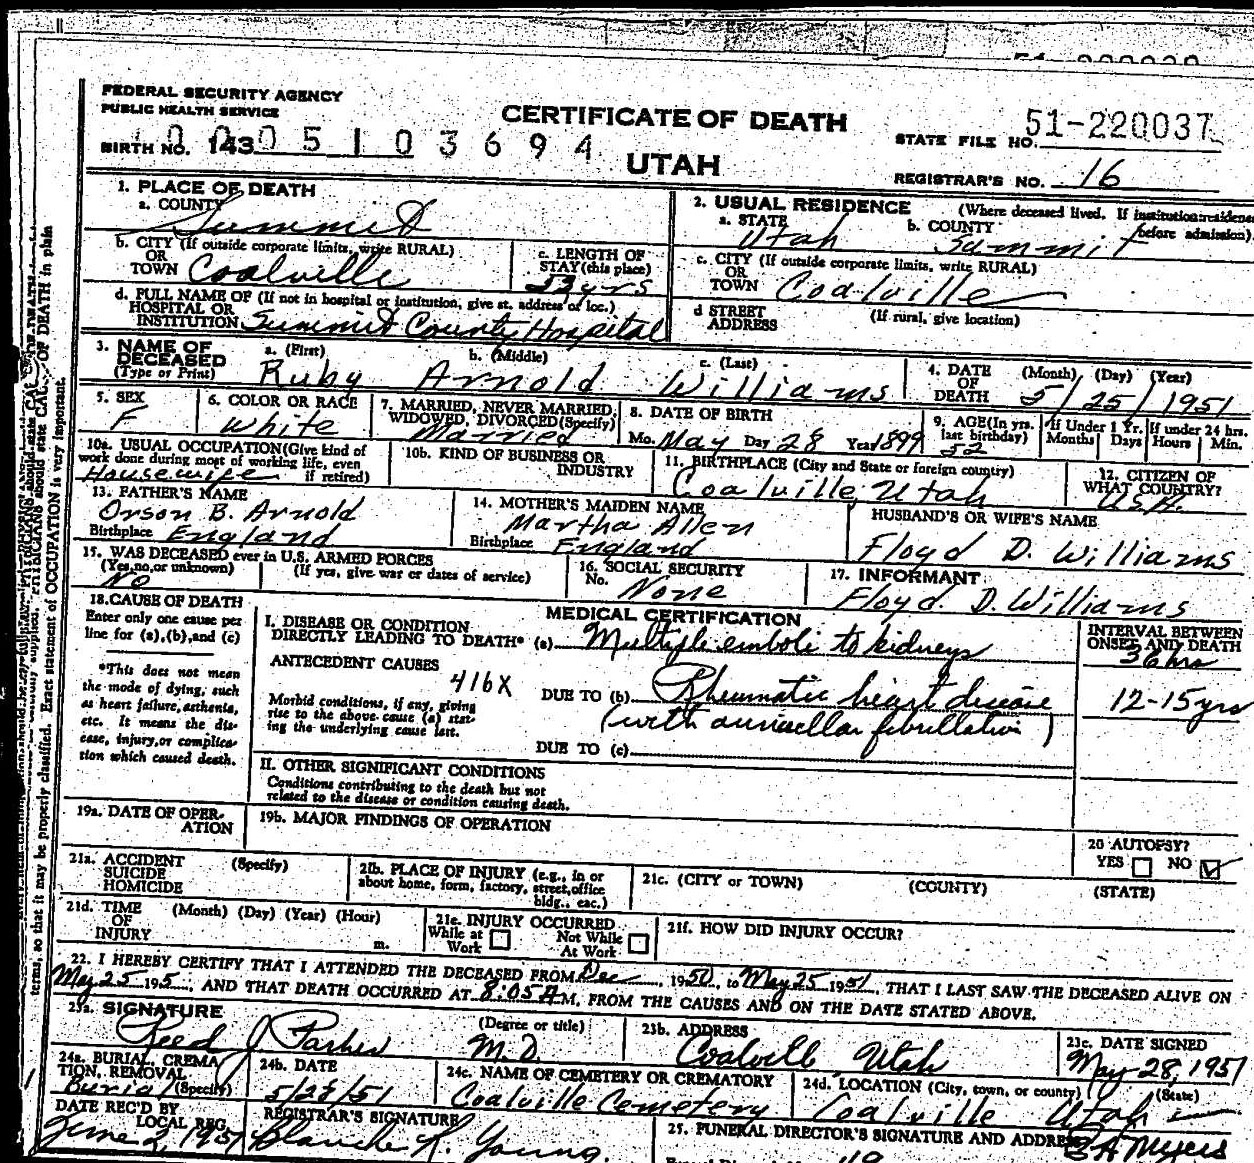 FEDERAL SECURITY AGENCY
PUBLIC HEALTH SERVICE
CERTIFICATE OF DEATH
UTAH
STATE FILE NO. 51-220037
REGISTRAR'S NO. 16
BIRTH NO. 143
1. PLACE OF DEATH
a. COUNTY
Summit
b. CITY (If outside corporate limits, write RURAL)
OR
TOWN Coalville
c. LENGTH OF
STAY (this place)
53 yrs
d. FULL NAME OF (If not in hospital or institution, give st. address or loc.)
HOSPITAL OR
INSTITUTION Summit County Hospital
2. USUAL RESIDENCE (Where deceased lived. If institution: residence
before admission).
a. STATE
Utah
b. COUNTY
Summit
c. CITY (If outside corporate limits, write RURAL)
OR
TOWN Coalville
d STREET (If rural, give location)
ADDRESS
3. NAME OF
DECEASED
(Type or Print)
a. (First)
Ruby
b. (Middle)
Arnold
c. (Last)
Williams
4. DATE (Month) (Day) (Year)
OF
DEATH 5/25/1951
5. SEX
F
6. COLOR OR RACE
White
7. MARRIED, NEVER MARRIED,
WIDOWED, DIVORCED (Specify)
Married
8. DATE OF BIRTH
Mo. May Day 28 Year 1899
9. AGE (In yrs.
last birthday)
52
If Under 1 Yr.
Months Days
If under 24 hrs.
Hours Min.
10a. USUAL OCCUPATION (Give kind of
work done during most of working life, even
if retired)
Housewife
10b. KIND OF BUSINESS OR
INDUSTRY
11. BIRTHPLACE (City and State or foreign country)
Coalville, Utah
12. CITIZEN OF
WHAT COUNTRY?
U.S.A.
13. FATHER'S NAME
Orson B. Arnold
Birthplace England
14. MOTHER'S MAIDEN NAME
Martha Allen
Birthplace England
HUSBAND'S OR WIFE'S NAME
Floyd D. Williams
15. WAS DECEASED ever in U.S. ARMED FORCES
(Yes, no, or unknown) (If yes, give war or dates of service)
No
16. SOCIAL SECURITY
No. None
17. INFORMANT
Floyd. D. Williams
18. CAUSE OF DEATH
Enter only one cause per
line for (a), (b), and (c)
*This does not mean
the mode of dying, such
as heart failure, asthenia,
etc. It means the dis-
ease, injury, or complica-
tion which caused death.
MEDICAL CERTIFICATION
I. DISEASE OR CONDITION
DIRECTLY LEADING TO DEATH* (a) Multiple emboli to kidneys
INTERVAL BETWEEN
ONSET AND DEATH
36 hrs
ANTECEDENT CAUSES
416X
Morbid conditions, if any, giving
rise to the above cause (a) stat-
ing the underlying cause last.
DUE TO (b) Rheumatic heart disease
(with auricular fibrillation)
12-15 yrs
DUE TO (c)
II. OTHER SIGNIFICANT CONDITIONS
Conditions contributing to the death but not
related to the disease or condition causing death.
19a. DATE OF OPER-
ATION
19b. MAJOR FINDINGS OF OPERATION
20 AUTOPSY?
YES NO
21a. ACCIDENT (Specify)
SUICIDE
HOMICIDE
21b. PLACE OF INJURY (e.g., in or
about home, form, factory, street, office
bldg., etc.)
21c. (CITY or TOWN) (COUNTY) (STATE)
21d. TIME (Month) (Day) (Year) (Hour)
OF
INJURY m.
21e. INJURY OCCURRED
While at Work
Not While At Work
21f. HOW DID INJURY OCCUR?
22. I HEREBY CERTIFY THAT I ATTENDED THE DECEASED FROM Dec, 1950, to May 25 1951, THAT I LAST SAW THE DECEASED ALIVE ON
May 25 195, AND THAT DEATH OCCURRED AT 8:05 A M, FROM THE CAUSES AND ON THE DATE STATED ABOVE.
23a. SIGNATURE (Degree or title)
Reed J Parker M.D.
23b. ADDRESS
Coalville Utah
23c. DATE SIGNED
May 28, 1951
24a. BURIAL, CREMA
TION, REMOVAL
Burial (Specify)
24b. DATE
5/28/51
24c. NAME OF CEMETERY OR CREMATORY
Coalville Cemetery
24d. LOCATION (City, town, or county) (State)
Coalville Utah
DATE REC'D BY
LOCAL REG.
June 2, 1951
REGISTRAR'S SIGNATURE
Blanche R. Young.
25. FUNERAL DIRECTOR'S SIGNATURE AND ADDRESS
Myers